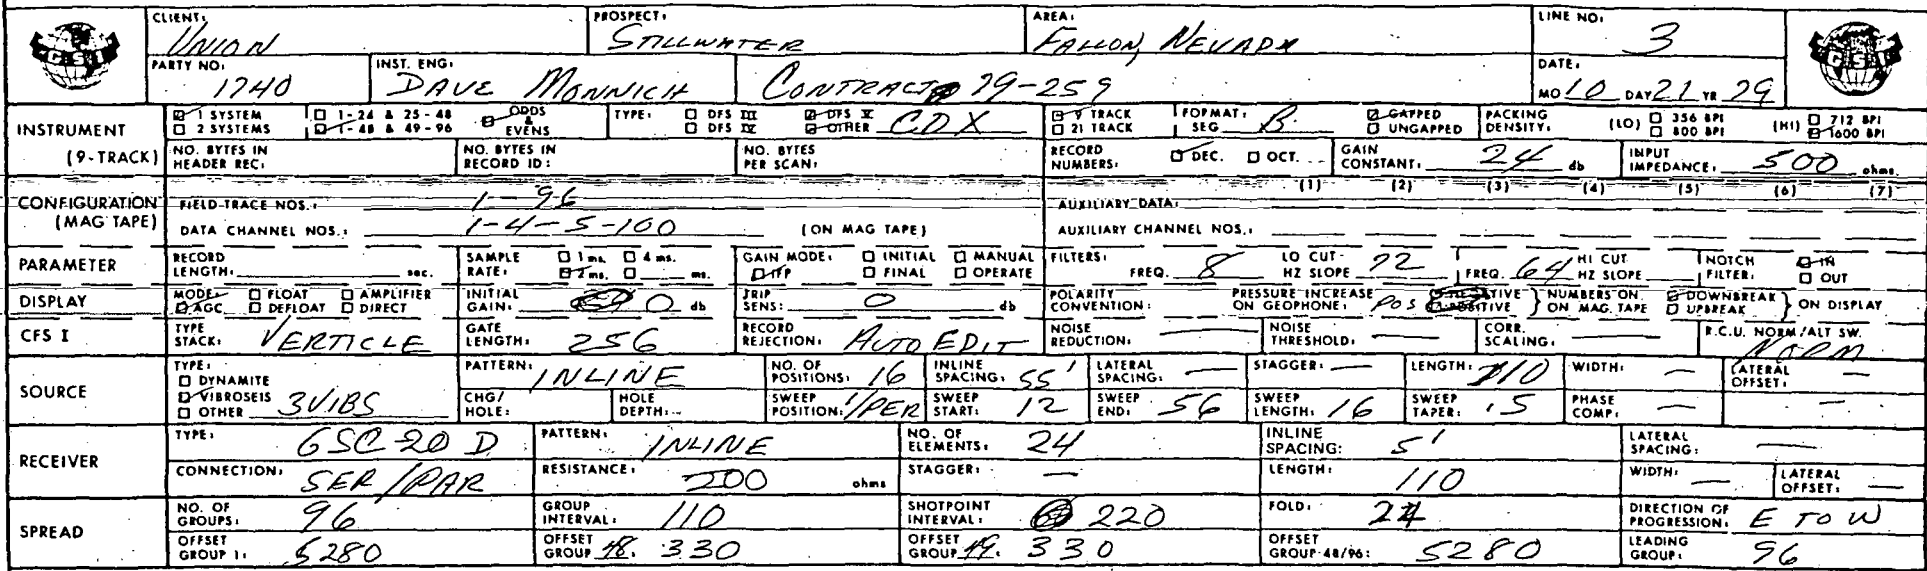 CLIENT: UNION PROSPECT: STILLWATER AREA: FALLON, NEVADA LINE NO: 3
GSI GSI
PARTY NO: 1740 INST. ENG: DAVE MONNICH CONTRACT 79-259 DATE: MO 10 DAY 21 YR 79
INSTRUMENT (9-TRACK) ☑ 1 SYSTEM ☐ 1-24 & 25-48 ☑ ODDS & EVENS TYPE: ☐ DFS III ☑ DFS V ☑ 9 TRACK FORMAT: SEG B ☑ GAPPED PACKING DENSITY: (LO) ☐ 356 BPI (HI) ☐ 712 BPI
☐ 2 SYSTEMS ☑ 1-48 & 49-96 ☐ DFS IV ☑ OTHER CDX ☐ 21 TRACK ☐ UNGAPPED ☐ 800 BPI ☑ 1600 BPI
NO. BYTES IN HEADER REC: NO. BYTES IN RECORD ID: NO. BYTES PER SCAN: RECORD NUMBERS: ☑ DEC. ☐ OCT. GAIN CONSTANT: 24 db INPUT IMPEDANCE: 500 ohms.
CONFIGURATION (MAG TAPE) FIELD TRACE NOS.: 1-96 AUXILIARY DATA: (1) (2) (3) (4) (5) (6) (7)
DATA CHANNEL NOS.: 1-4-5-100 (ON MAG TAPE) AUXILIARY CHANNEL NOS.:
PARAMETER RECORD LENGTH: sec. SAMPLE RATE: ☐ 1 ms. ☐ 4 ms. ☑ 2 ms. ☐ ms. GAIN MODE: ☐ INITIAL ☐ MANUAL ☑ IFP ☐ FINAL ☐ OPERATE FILTERS: FREQ. 8 LO CUT HZ SLOPE 72 FREQ. 64 HI CUT HZ SLOPE NOTCH FILTER: ☑ IN ☐ OUT
DISPLAY MODE: ☐ FLOAT ☐ AMPLIFIER ☑ AGC ☐ DEFLOAT ☐ DIRECT INITIAL GAIN: 0 db TRIP SENS: 0 db POLARITY CONVENTION: PRESSURE INCREASE ON GEOPHONE: POS NEGATIVE POSITIVE } NUMBERS ON MAG. TAPE ☑ DOWNBREAK ☐ UPBREAK } ON DISPLAY
CFS I TYPE STACK: VERTICLE GATE LENGTH: 256 RECORD REJECTION: AUTO EDIT NOISE REDUCTION: — NOISE THRESHOLD: — CORR. SCALING: — R.C.U. NORM/ALT SW. NORM
SOURCE TYPE: ☐ DYNAMITE ☑ VIBROSEIS ☐ OTHER 3VIBS PATTERN: INLINE NO. OF POSITIONS: 16 INLINE SPACING: 55' LATERAL SPACING: — STAGGER: — LENGTH: 110 WIDTH: — LATERAL OFFSET: —
CHG/HOLE: HOLE DEPTH: SWEEP POSITION: 1/PER SWEEP START: 12 SWEEP END: 56 SWEEP LENGTH: 16 SWEEP TAPER: .5 PHASE COMP: — —
RECEIVER TYPE: GSC-20 D PATTERN: INLINE NO. OF ELEMENTS: 24 INLINE SPACING: 5' LATERAL SPACING: —
CONNECTION: SER/PAR RESISTANCE: 200 ohms STAGGER: — LENGTH: 110 WIDTH: — LATERAL OFFSET: —
SPREAD NO. OF GROUPS: 96 GROUP INTERVAL: 110 SHOTPOINT INTERVAL: 220 FOLD: 24 DIRECTION OF PROGRESSION: E TO W
OFFSET GROUP 1: 5280 OFFSET GROUP 48: 330 OFFSET GROUP 49: 330 OFFSET GROUP 48/96: 5280 LEADING GROUP: 96